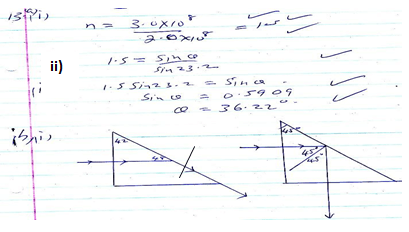 13.a)i) n = 3.0x10⁸ / 2.0x10⁸ = 1.5
ii) 1.5 = Sinθ / sin23.2
1.5 Sin23.2 = Sinθ
Sinθ = 0.5909
θ = 36.22°
b)i)
42 48
45° 45° 45°